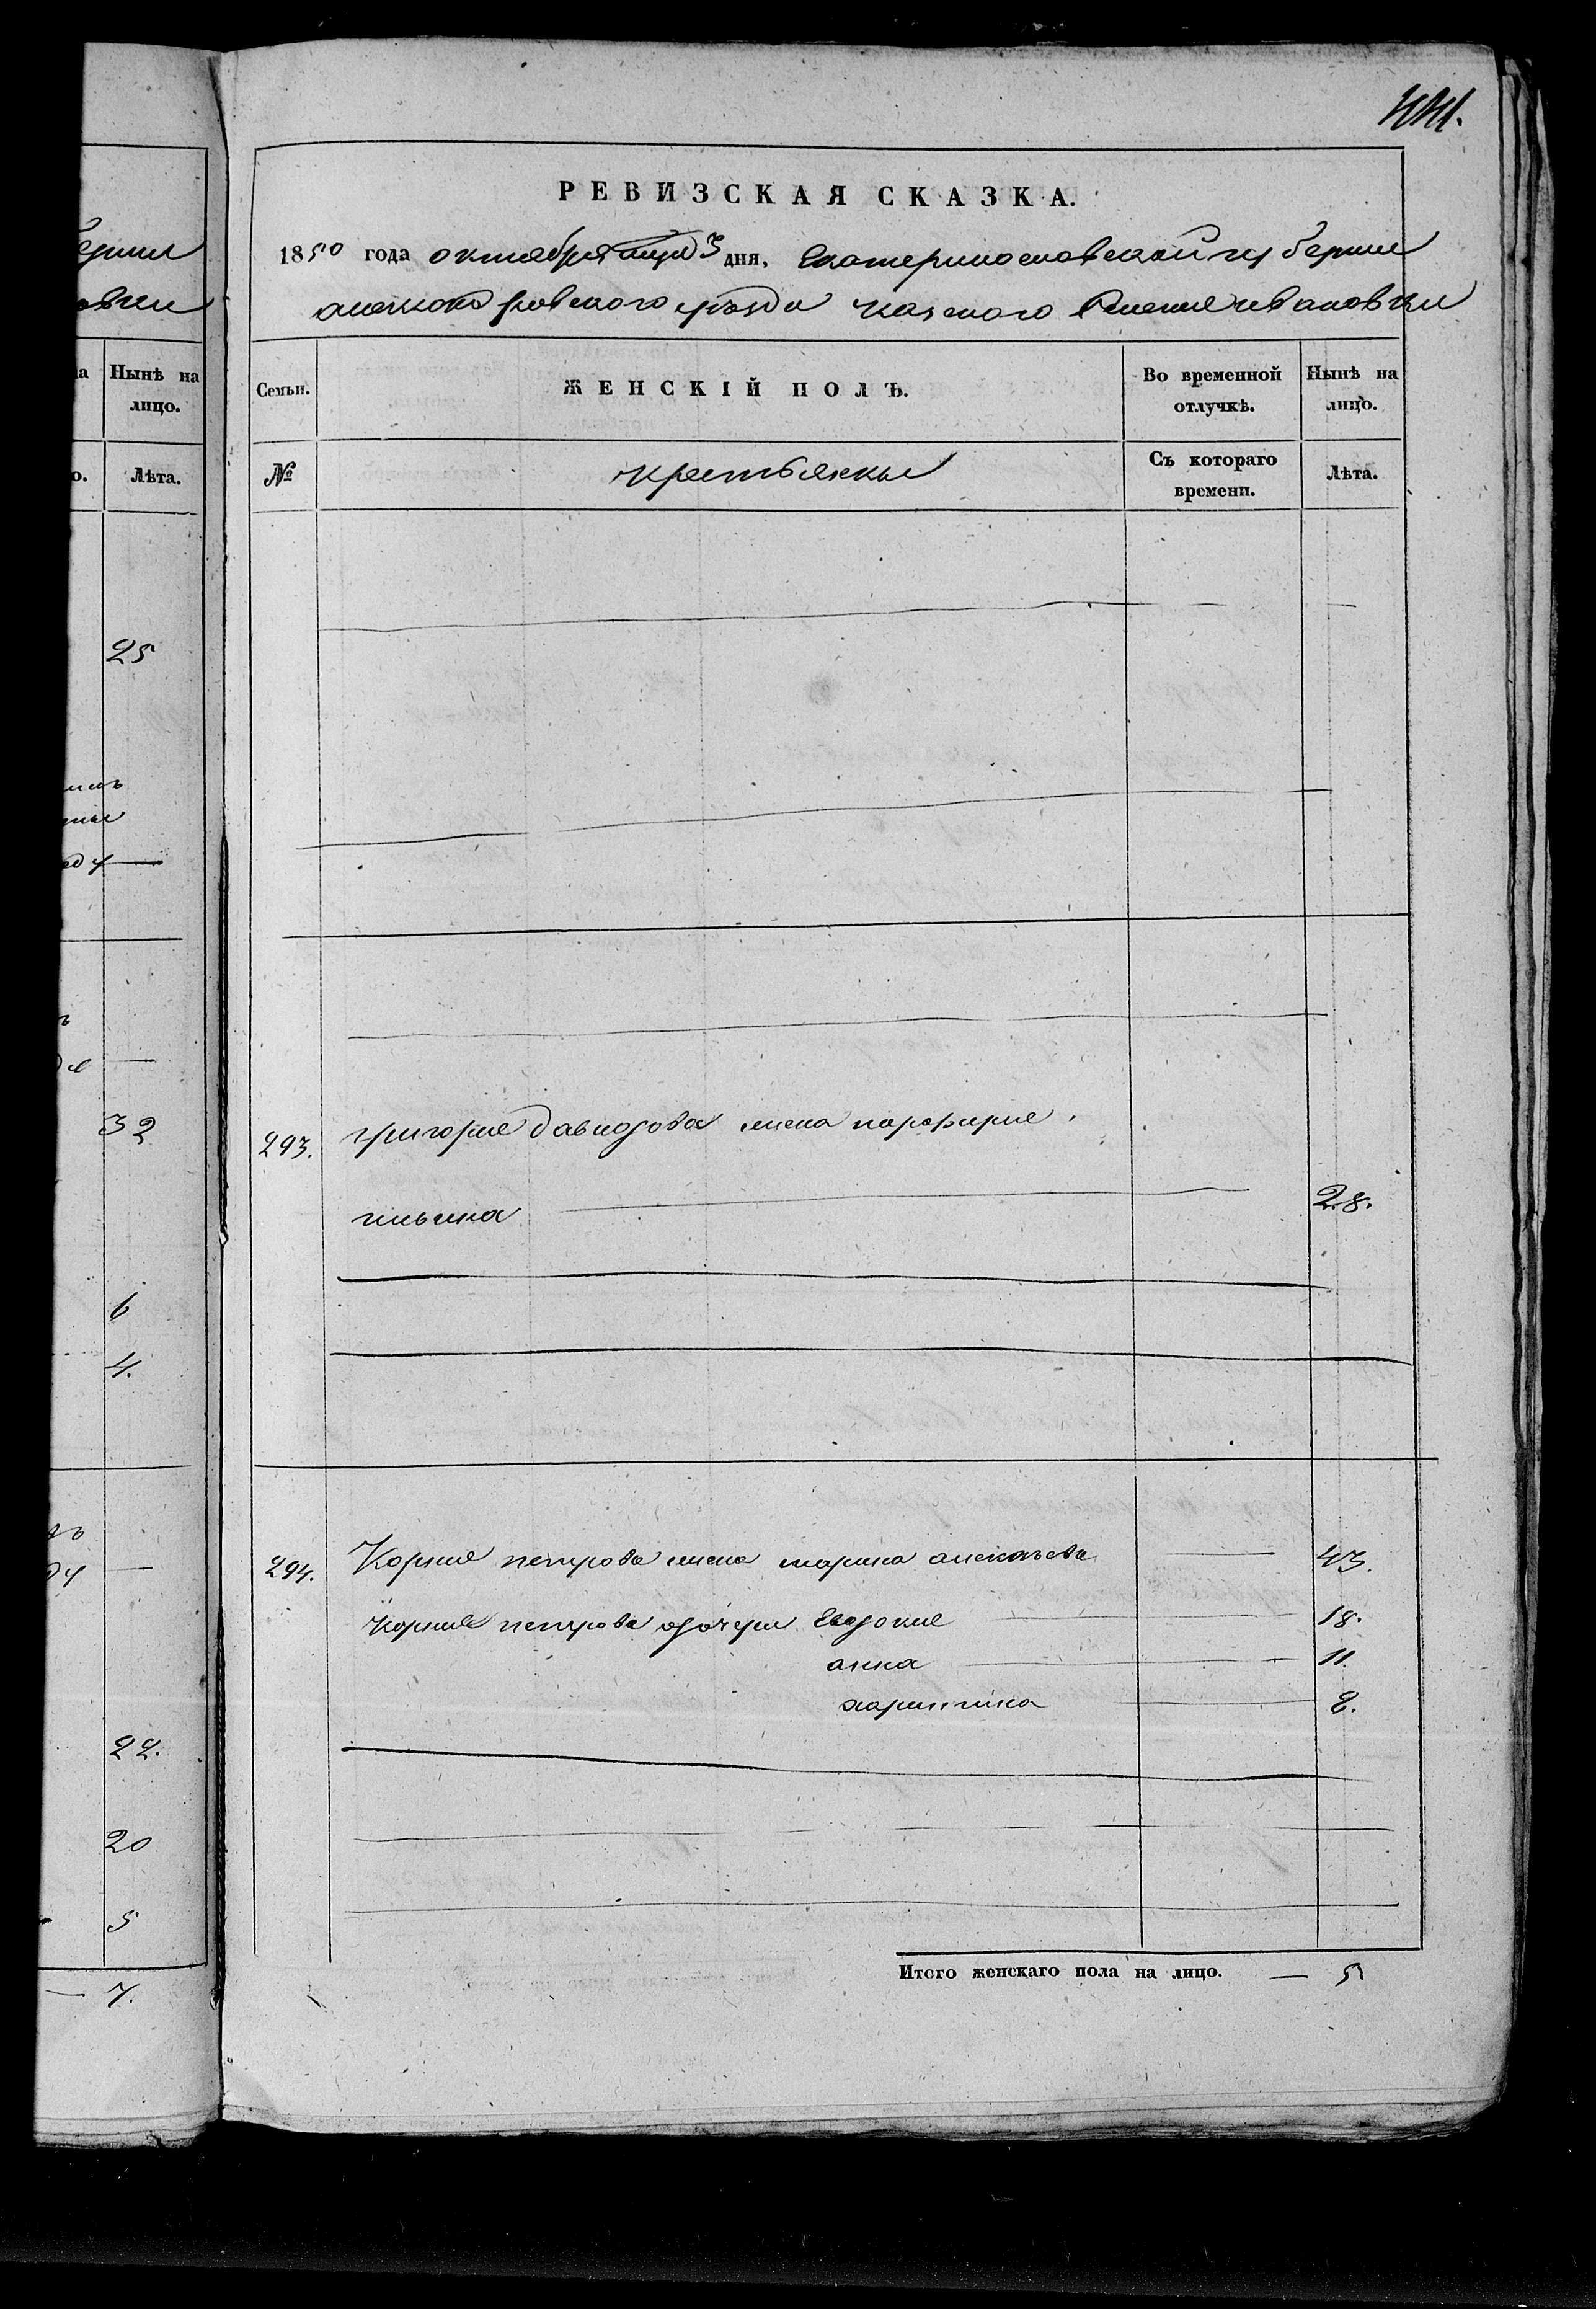 ершы
овки
а Нынѣ на
лицо.
о. Лѣта.
25
32
6
4.
22.
20
5
— 7.
РЕВИЗСКАЯ СКАЗКА.
1850 года октября 3 дня, Екатеринославской губернии
александровского уезда казеного Селения ивановки
Семьи. ЖЕНСКІЙ ПОЛЪ. Во временной отлучкѣ. Нынѣ на лицо.
№ крестьянки Съ котораго времени. Лѣта.
293. григория давидова жена порфирия
ильина 28.
294. Корния петрова жена марина алексеева 43.
Корния петрова дочери Евдокия 18.
анна 11.
харитина 8.
Итого женскаго пола на лицо. — 5